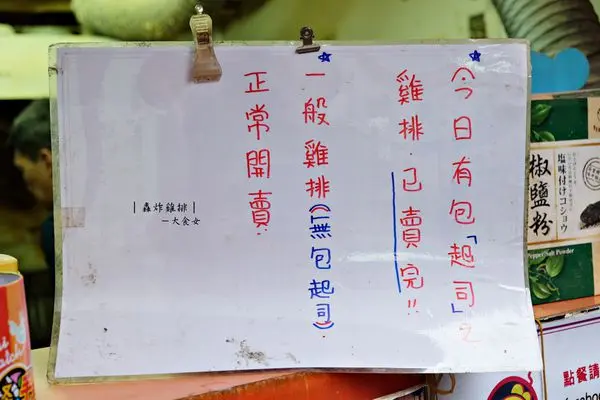 ★今日有包「起司」之
雞排.已賣完!!
★一般雞排(無包起司).
正常開賣.
|轟炸雞排|
—大食女
椒鹽粉
塩味付けコショウ
Pepper Salt Powder
點餐請